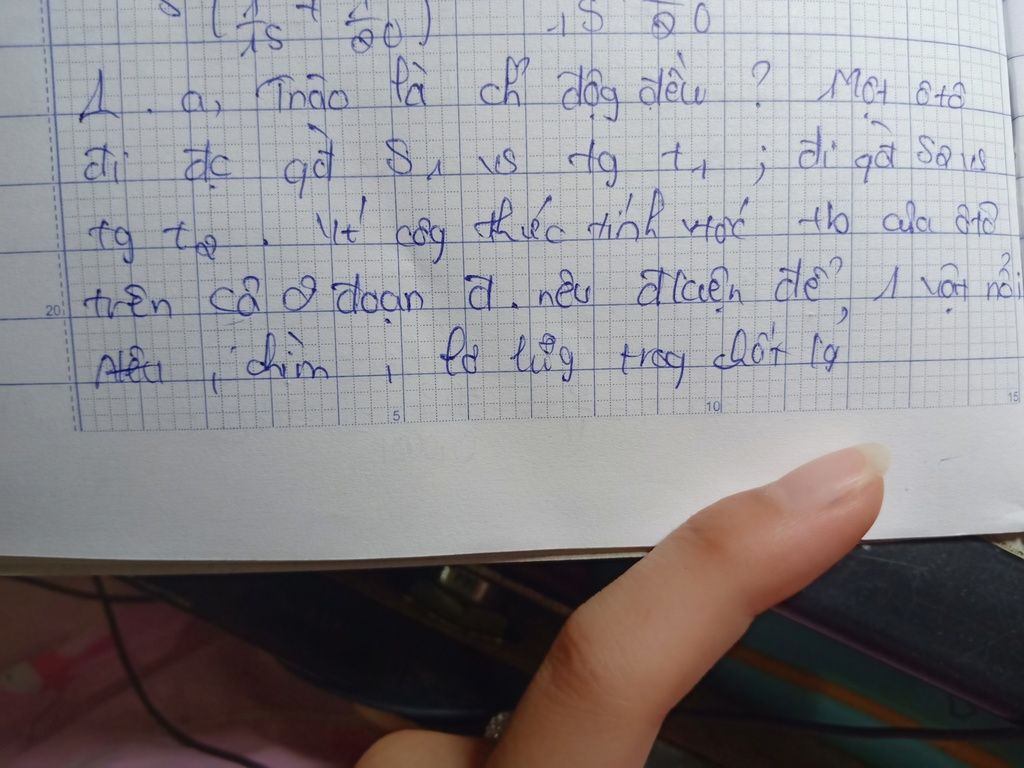 (1/15 + 1/20) 15 20
1. a, Tnào là cđ độg đều ? Một ôtô
đi đc qđ S1 vs tg t1 ; đi qđ S2 vs
tg t2 . Vt côg thức tính vtốc tb của ôtô
trên cả 2 đoạn đ. nêu đkiện để 1 vật nổi
, chìm , lơ lửg trog chất lg
20
5
10
15